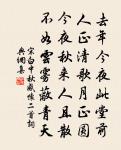 去年今夜此堂前
人正清歌月正圓
今夜秋來人且散
不如雲霧蔽青天
宋白中秋感懷二首詞
興國集